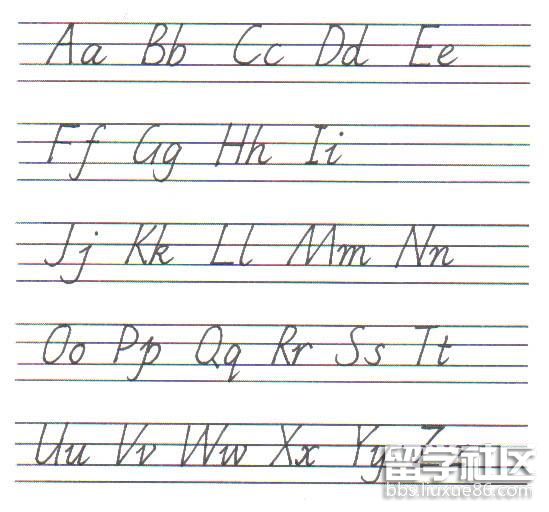 Aa Bb Cc Dd Ee
Ff Gg Hh Ii
Jj Kk Ll Mm Nn
Oo Pp Qq Rr Ss Tt
Uu Vv Ww Xx Yy Zz
留学社区
bbs.liuxue86.com